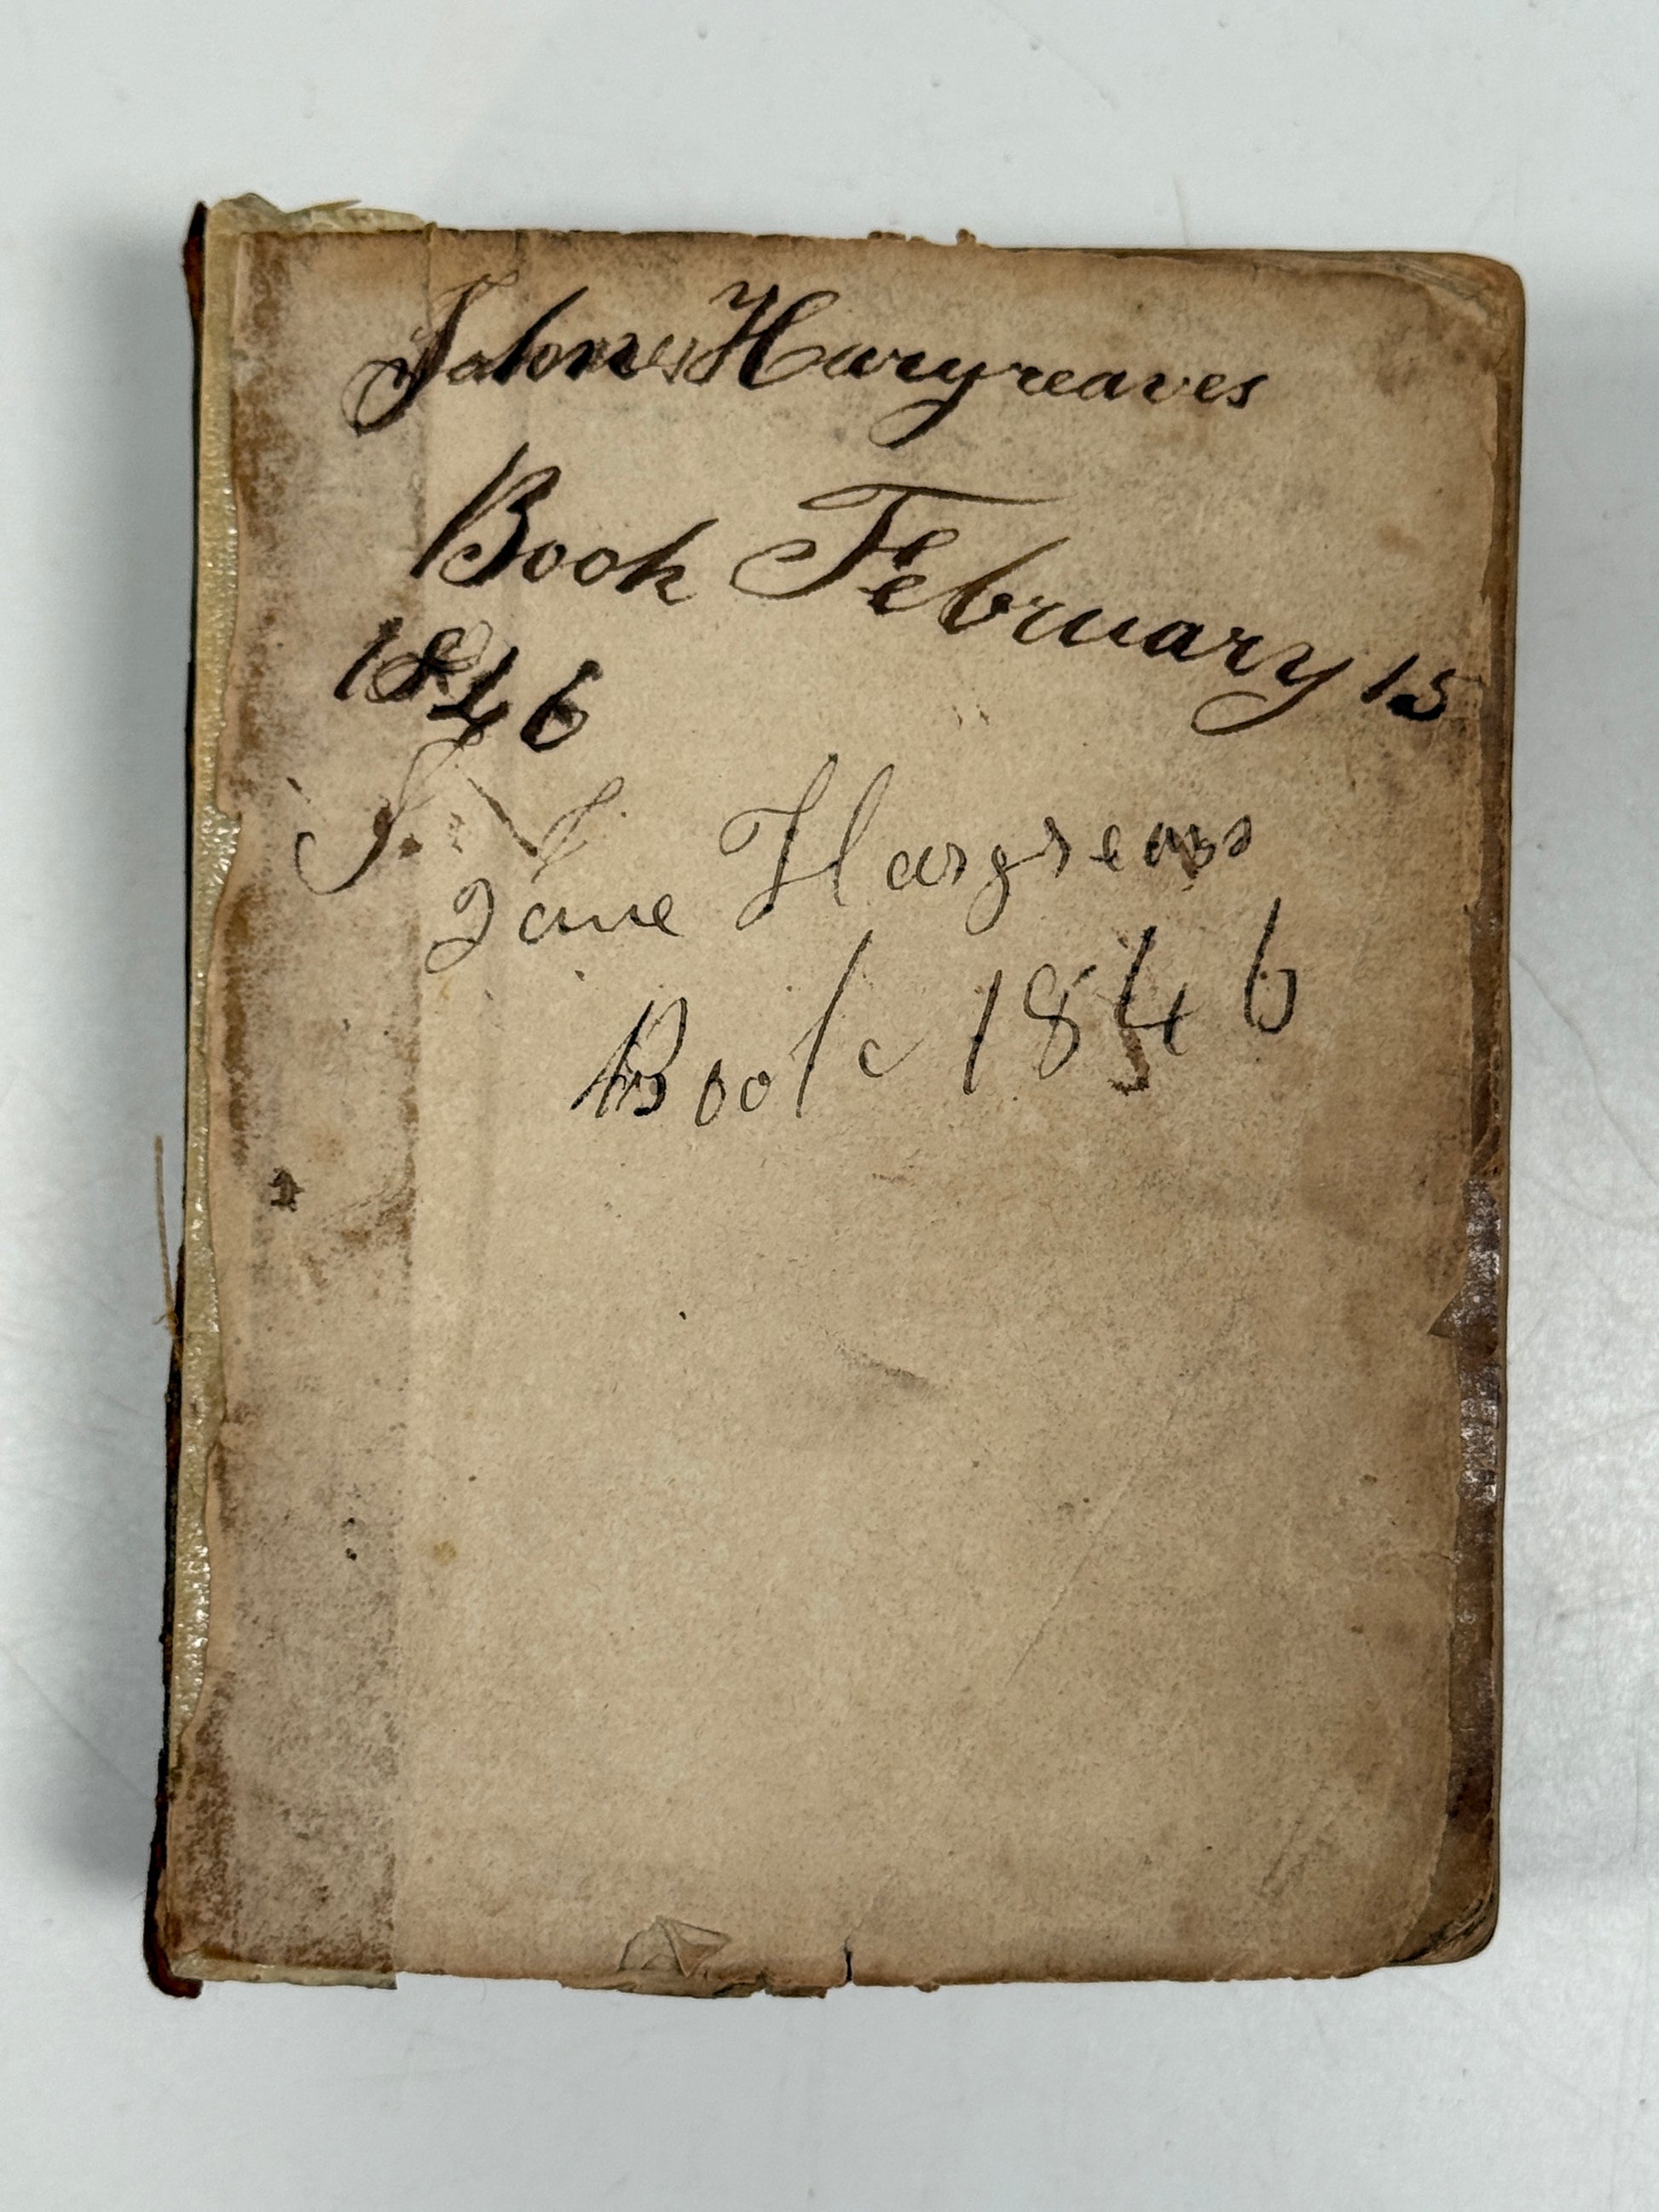 John Hargreaves
Book February 15
1846
J.
Jane Hargreaves
Book 1846